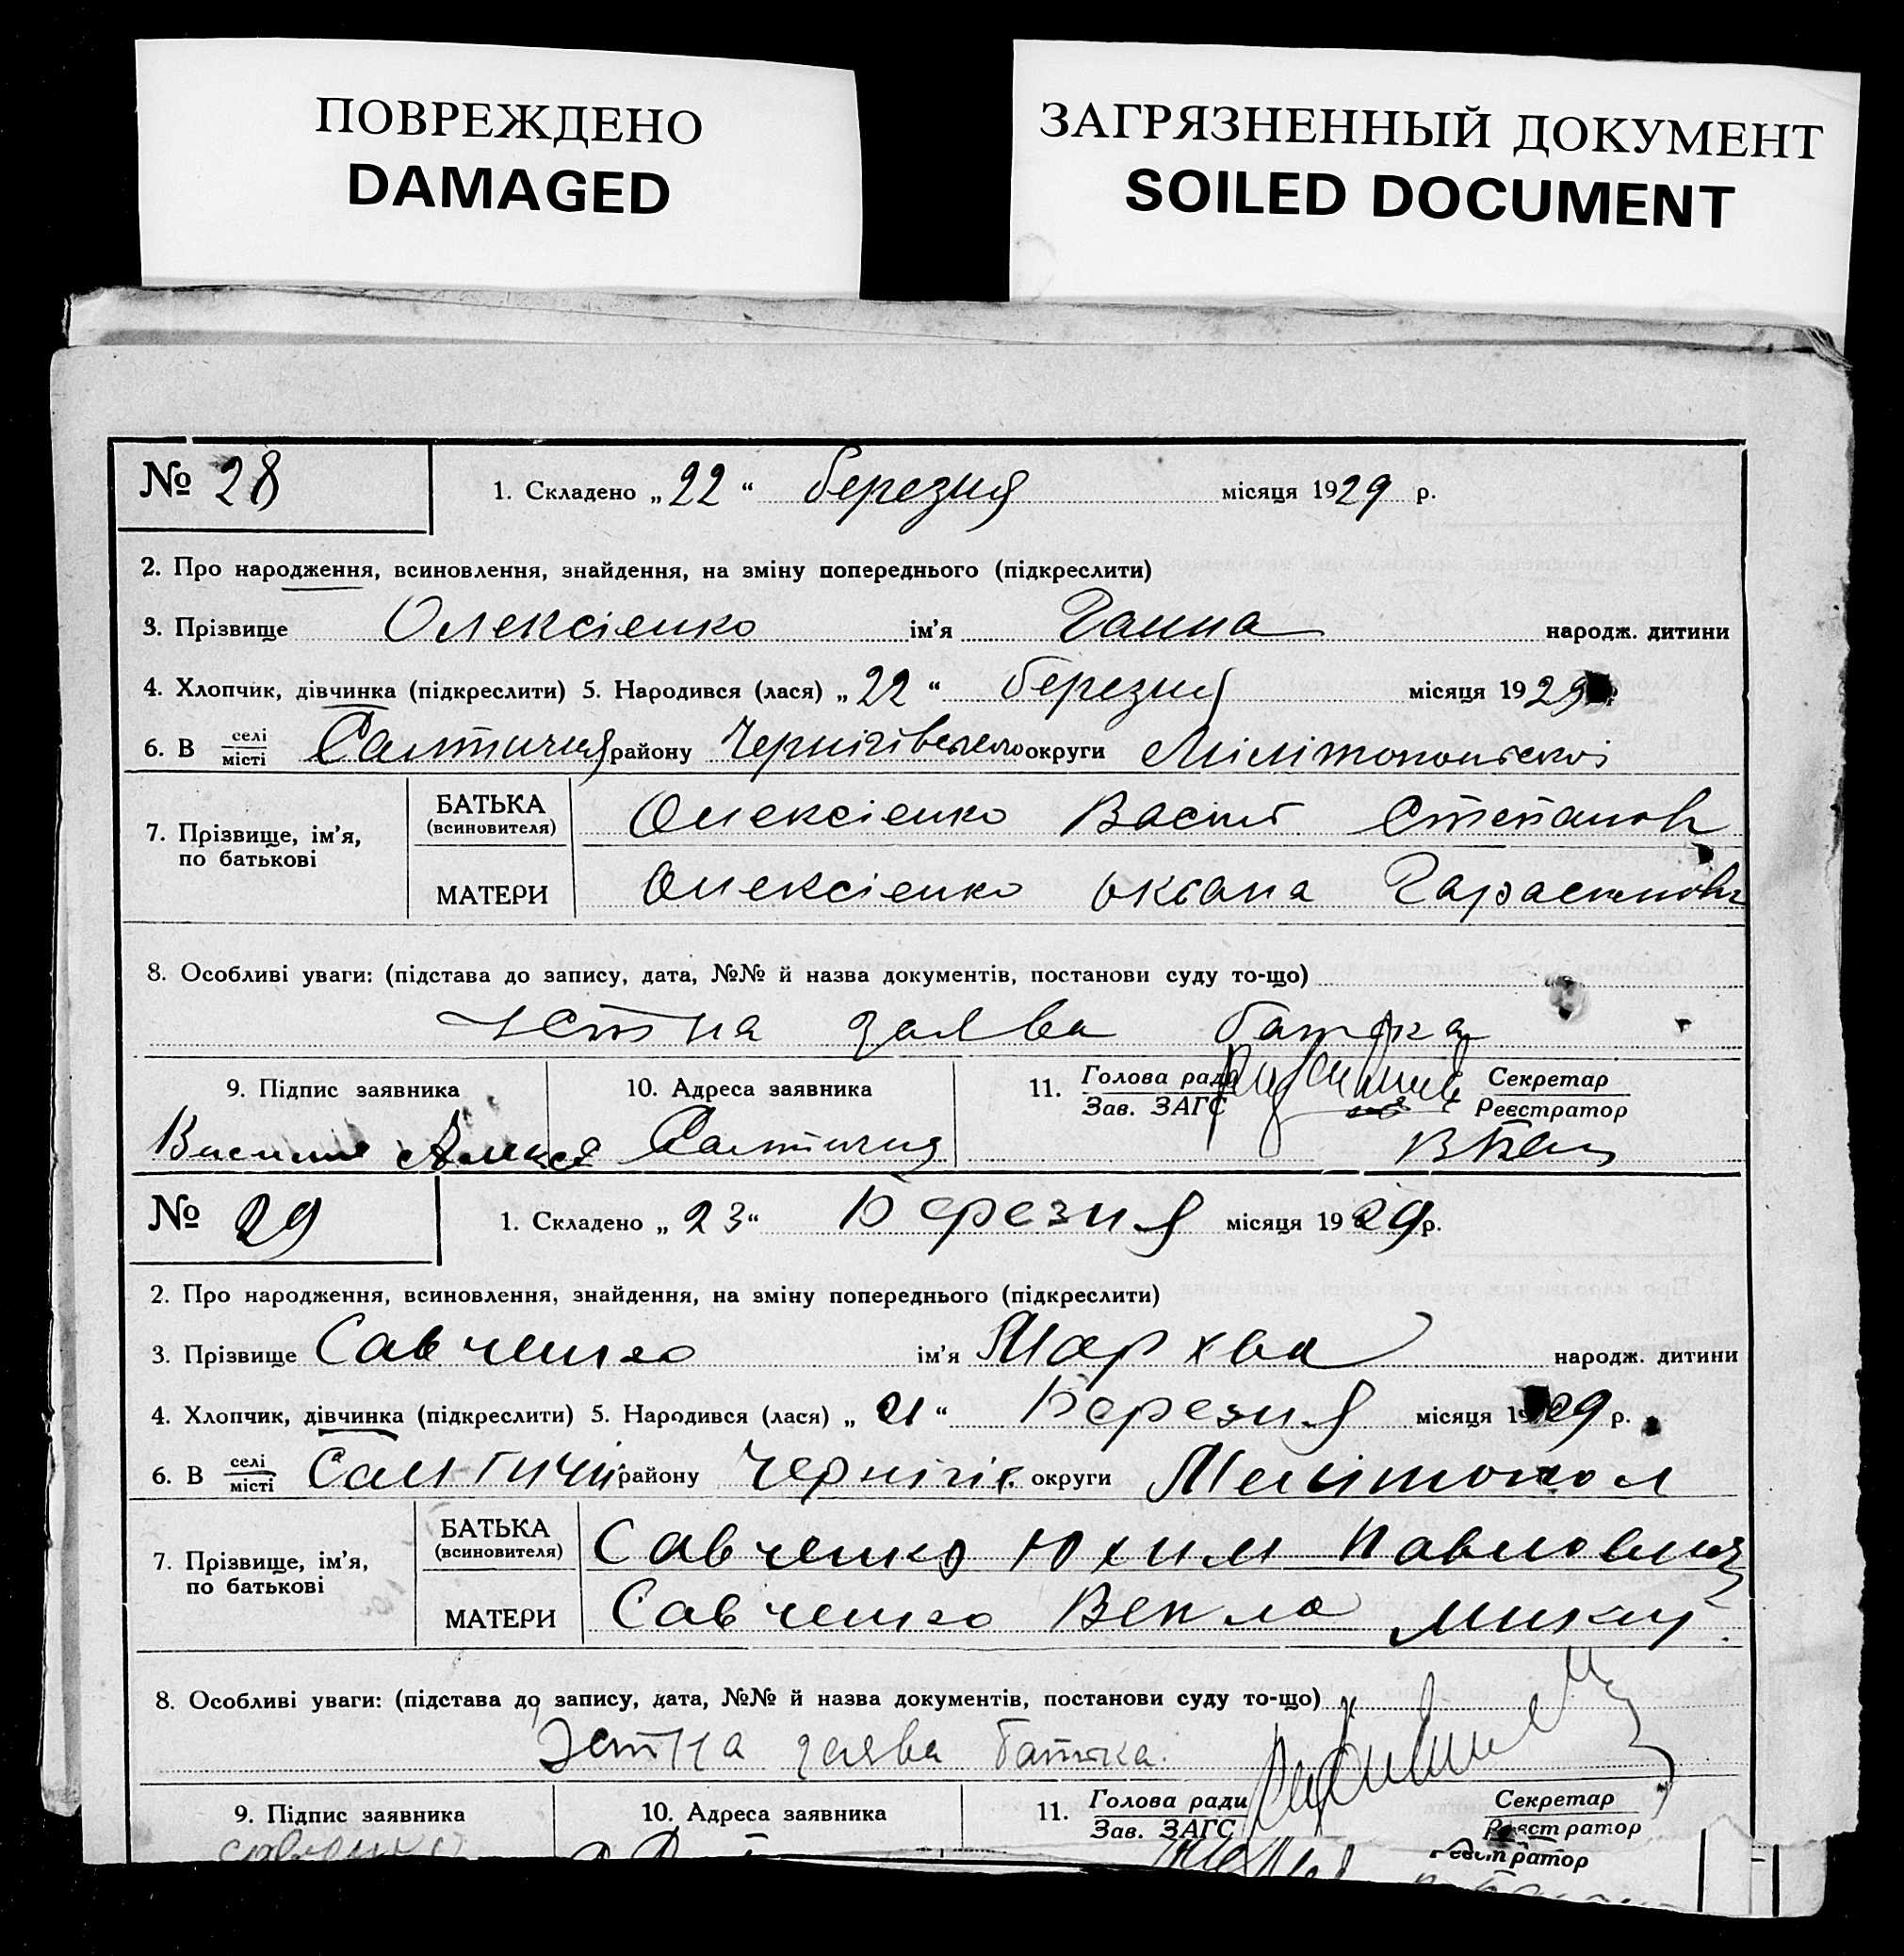 ПОВРЕЖДЕНО
DAMAGED
ЗАГРЯЗНЕННЫЙ ДОКУМЕНТ
SOILED DOCUMENT
№ 28
1. Складено „ 22 “ березня місяця 1929 р.
2. Про народження, всиновлення, знайдення, на зміну попереднього (підкреслити)
3. Прізвище Олексієнко ім’я Ганна народж. дитини
4. Хлопчик, дівчинка (підкреслити) 5. Народився (лася) „ 22 “ березня місяця 1929
6. В селі/місті Салтичия району Чернігівського округи Мілітопольської
7. Прізвище, ім’я, по батькові
БАТЬКА (всиновителя) Олексієнко Василь Степанов
МАТЕРИ Олексієнко Оксана Гарасимовн
8. Особливі уваги: (підстава до запису, дата, №№ й назва документів, постанови суду то-що)
устна заява батька
9. Підпис заявника
10. Адреса заявника
11. Голова ради Секретар
Зав. ЗАГС Реєстратор
Салтичия
№ 29
1. Складено „ 23 “ Березня місяця 1929 р.
2. Про народження, всиновлення, знайдення, на зміну попереднього (підкреслити)
3. Прізвище Савченко ім’я Мархва народж. дитини
4. Хлопчик, дівчинка (підкреслити) 5. Народився (лася) „ 21 “ Березня місяця 1929 р.
6. В селі/місті Салтичия району Чернігів. округи Мелітопол
7. Прізвище, ім’я, по батькові
БАТЬКА (всиновителя) Савченко Юхим Павлович
МАТЕРИ Савченко Векла
8. Особливі уваги: (підстава до запису, дата, №№ й назва документів, постанови суду то-що)
заява батька.
9. Підпис заявника
10. Адреса заявника
11. Голова ради Секретар
Зав. ЗАГС Реєстратор
Савченко
Реєстратор